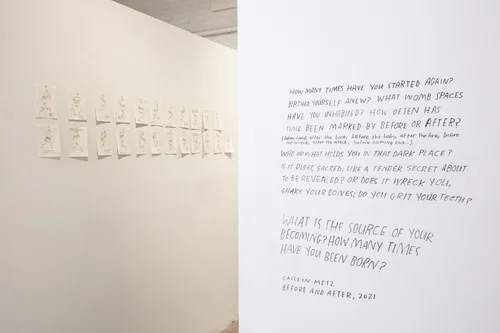 HOW MANY TIMES HAVE YOU STARTED AGAIN?
BIRTHED YOURSELF ANEW? WHAT WOMB SPACES
HAVE YOU INHABITED? HOW OFTEN HAS
TIME BEEN MARKED BY BEFORE OR AFTER?
before the baby, after the fire, before
WHO OR WHAT HOLDS YOU IN THAT DARK PLACE?
IS IT QUIET, SACRED, LIKE A TENDER SECRET ABOUT
TO BE REVEALED? OR DOES IT WRECK YOU,
SHAKE YOUR BONES; DO YOU GRIT YOUR TEETH?
WHAT IS THE SOURCE OF YOUR
BECOMING? HOW MANY TIMES
HAVE YOU BEEN BORN?
CAITLIN METZ
BEFORE AND AFTER, 2021